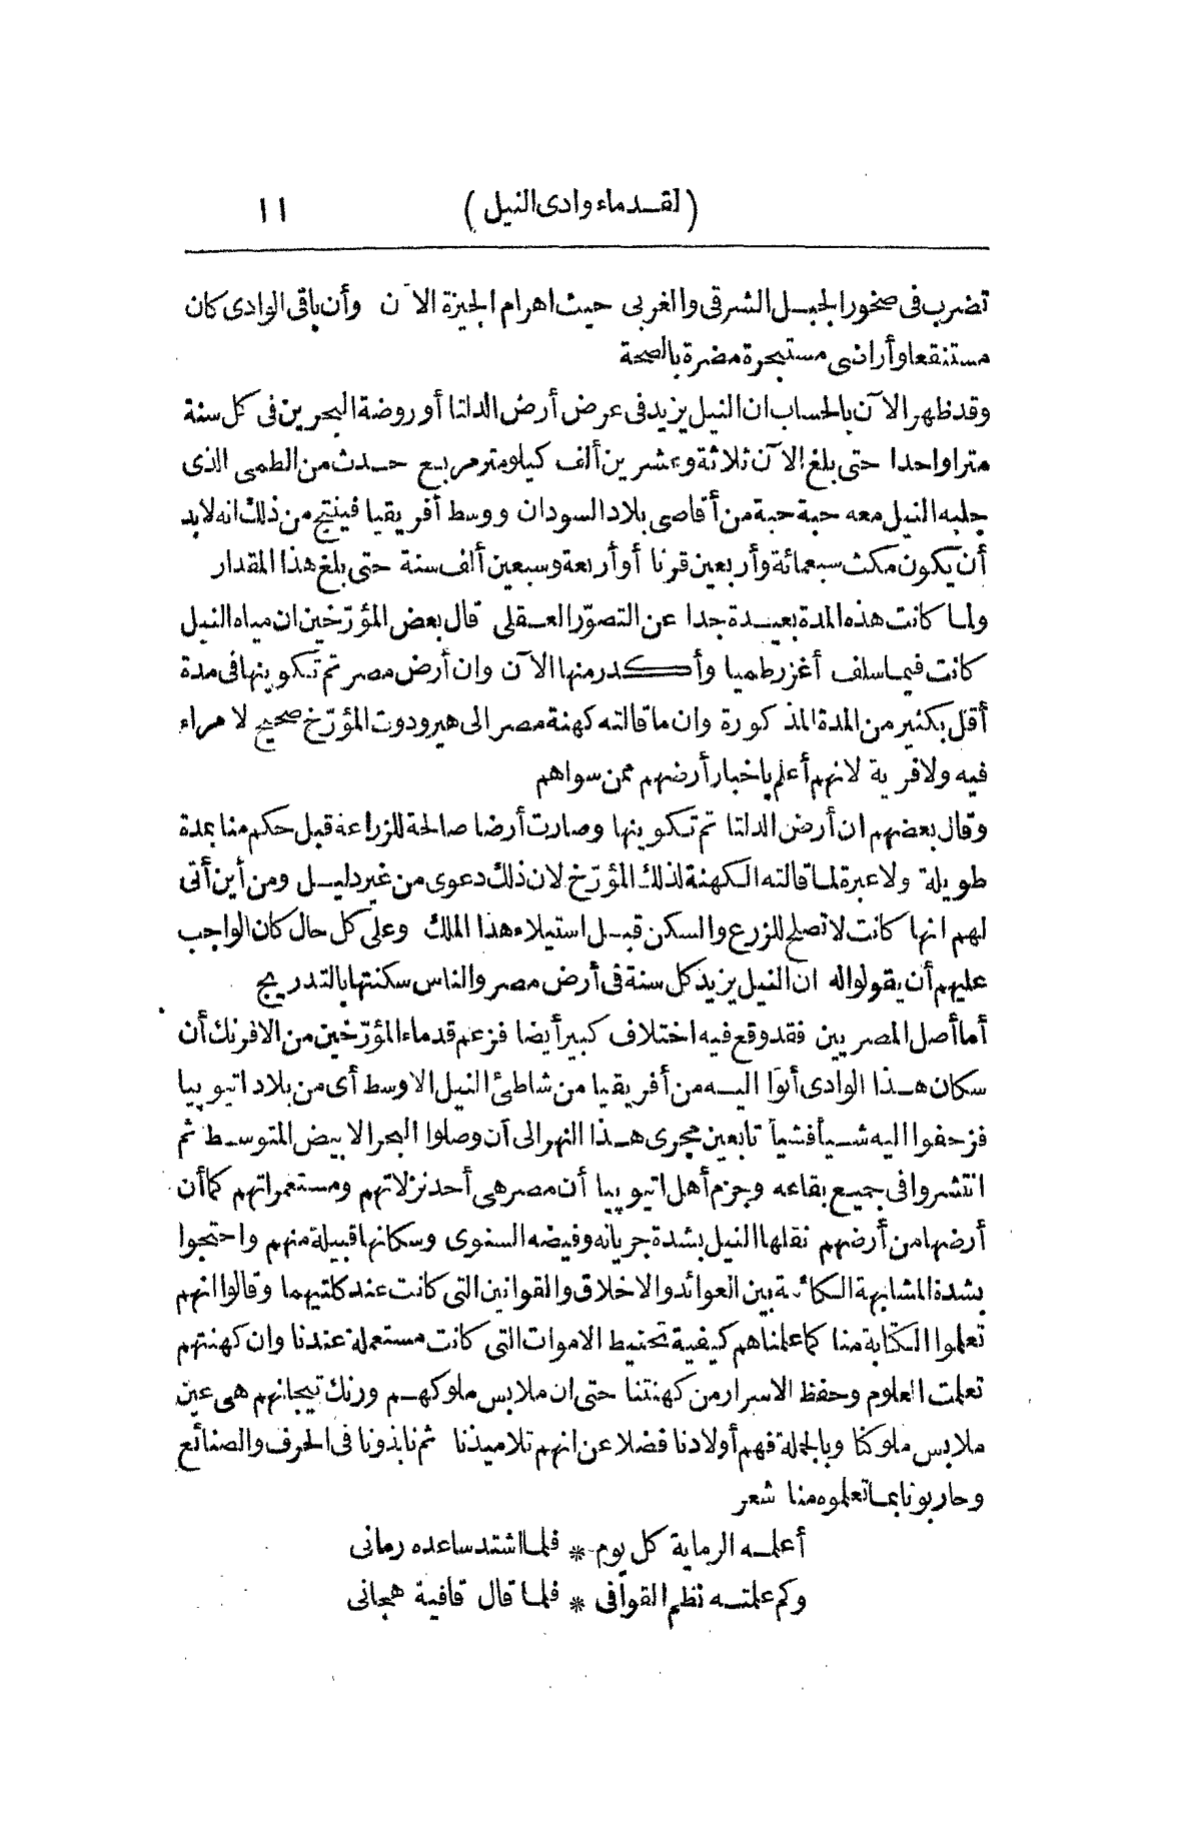 (لقدماء وادى النيل) ١١
تضرب فى صخور الجبل الشرقى والغربى حيث اهرام الجيزة الآن وأن باقى الوادى كان
مستنقعا وأراضى مستبحرة مضرة بالصحة
وقد ظهر الآن بالحساب ان النيل يزيد فى عرض أرض الدلتا أو روضة البحرين فى كل سنة
مترا واحدا حتى بلغ الآن ثلاثة وعشرين ألف كيلومتر مربع حدث من الطمى الذى
جلبه النيل معه حبة حبة من أقاصى بلاد السودان ووسط أفريقيا فينتج من ذلك انه لابد
أن يكون مكث سبعمائة وأربعين قرنا أو أربعة وسبعين ألف سنة حتى بلغ هذا المقدار
ولما كانت هذه المدة بعيدة جدا عن التصوّر العقلى قال بعض المؤرّخين ان مياه النيل
كانت فيما سلف أغزر طميا وأكدر منها الآن وان أرض مصر تم تكوينها فى مدة
أقل بكثير من المدة المذكورة وان ما قالته كهنة مصر الى هيرودوت المؤرّخ صحيح لا مراء
فيه ولا فرية لانهم أعلم باخبار أرضهم ممن سواهم
وقال بعضهم ان أرض الدلتا تم تكوينها وصارت أرضا صالحة للزراعة قبل حكم منا بمدة
طويلة ولا عبرة لما قالته الكهنة لذلك المؤرّخ لان ذلك دعوى من غير دليل ومن أين أتى
لهم انها كانت لا تصلح للزرع والسكن قبل استيلاء هذا الملك وعلى كل حال كان الواجب
عليهم أن يقولوا له ان النيل يزيد كل سنة فى أرض مصر والناس سكنتها بالتدريج
أما أصل المصريين فقد وقع فيه اختلاف كبير أيضا فزعم قدماء المؤرّخين من الافرنك أن
سكان هذا الوادى أتوا اليه من أفريقيا من شاطئ النيل الاوسط أى من بلاد اتيوپيا
فزحفوا اليه شيأ فشيأ تابعين مجرى هذا النهر الى أن وصلوا البحر الابيض المتوسط ثم
انتشروا فى جميع بقاعه وجزم أهل اتيوپيا أن مصر هى أحد نزلاتهم ومستعمراتهم كما أن
أرضها من أرضهم نقلها النيل بشدة جريانه وفيضه السنوى وسكانها قبيلة منهم واحتجوا
بشدة المشابهة الكائنة بين العوائد والاخلاق والقوانين التى كانت عند كلتيهما وقالوا انهم
تعلموا الكتابة منا كما علمناهم كيفية تحنيط الاموات التى كانت مستعملة عندنا وان كهنتهم
تعلمت العلوم وحفظ الاسرار من كهنتنا حتى ان ملابس ملوكهم ورنك تيجانهم هى عين
ملابس ملوكنا وبالجملة فهم أولادنا فضلا عن انهم تلاميذنا ثم نابذونا فى الحرف والصنائع
وحاربونا بما تعلموه منا شعر
أعلمه الرماية كل يوم * فلما اشتد ساعده رمانى
وكم علمته نظم القوافى * فلما قال قافية هجانى